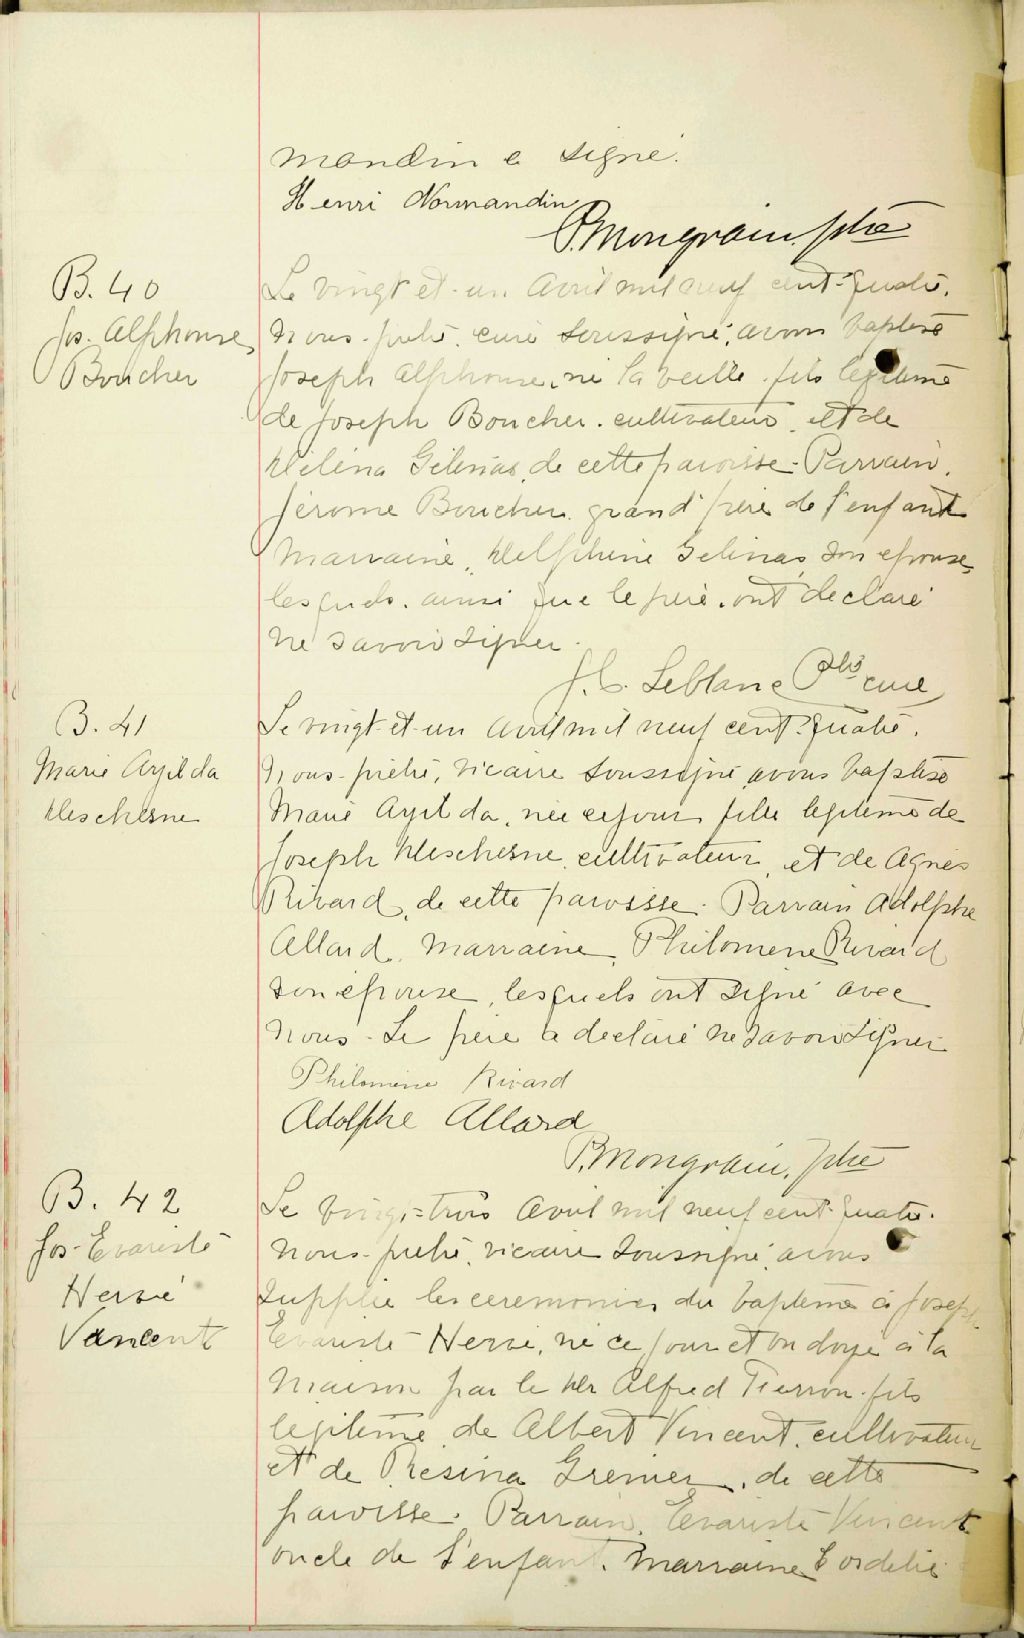 mandin a signé.
Henri Normandin
P. Mongrain, ptre
B. 40
Jos. Alphonse
Boucher
Le vingt et-un Avril mil neuf cent-quatre,
nous-prêtre, curé soussigné, avons baptisé
Joseph Alphonse, né la veille, fils légitime
de Joseph Boucher, cultivateur, et de
Héléna Gélinas, de cette paroisse. Parrain,
Jérome Boucher, grand'père de l'enfant
Marraine, Delphine Gélinas, son épouse,
lesquels, ainsi que le père, ont déclaré
ne savoir signer.
Leblanc Ptre curé
B. 41
Marie Azilda
Deschesne
Le vingt-et-un Avril mil neuf cent-quatre,
nous-prêtre, vicaire soussigné, avons baptisé
Marie Azilda, née ce jour, fille légitime de
Joseph Deschesne, cultivateur, et de Agnès
Rivard, de cette paroisse. Parrain Adolphe
Allard, Marraine, Philomene Rivard
son épouse, lesquels ont signé avec
nous. Le père a déclaré ne savoir signer
Philomène Rivard
Adolphe Allard
P. Mongrain, ptre
B. 42
Jos-Evariste
Hervé
Vincent
Le vingt-trois Avril mil neuf cent-quatre,
nous-prêtre, vicaire soussigné, avons
supplié les cérémonies du baptême à Joseph
Evariste Hervé, né ce jour et ondoyé à la
maison par le Dr Alfred Tierron, fils
légitime de Albert Vincent, cultivateur
et de Résina Grenier, de cette
paroisse. Parrain, Evariste Vincent
oncle de l'enfant. Marraine Cordélie